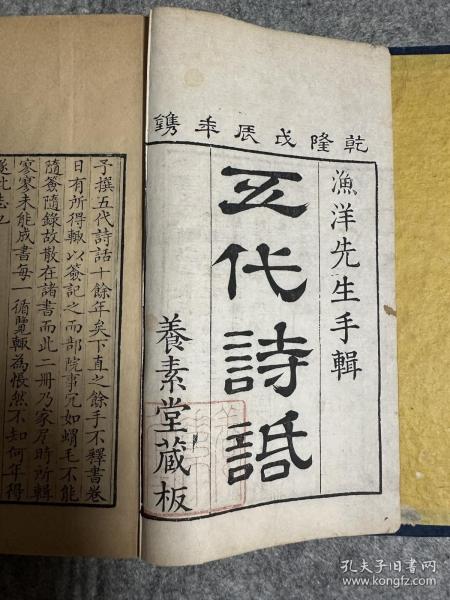 乾隆戊辰年鐫
漁洋先生手輯
五代詩話
養素堂蔵板
予撰五代詩話十餘年矣下直之餘手不釋書卷
日有所得輒以簽記之而部院事冗如蝟毛不能
隨簽隨錄故散在諸書而此二冊乃家居時所輯
寥寥未能成書每一循覽輒為悵然不知何年得
遂此志也
孔夫子旧书网
www.kongfz.com